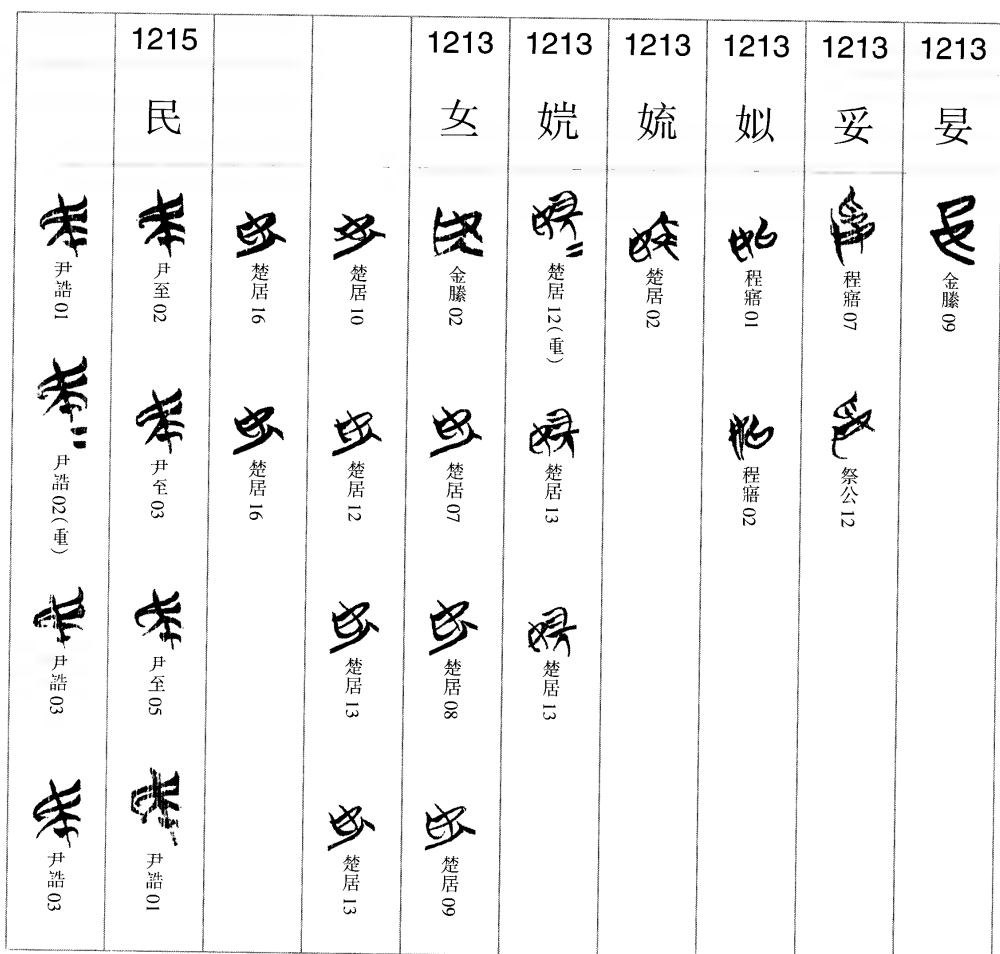 1213
妟
金縢 09
1213
妥
程寤 07
祭公 12
1213
姒
程寤 01
程寤 02
1213
楚居 02
1213
楚居 12（重）
楚居 13
楚居 13
1213
金縢 02
楚居 07
楚居 08
楚居 09
楚居 10
楚居 12
楚居 13
楚居 13
楚居 16
楚居 16
1215
民
尹至 02
尹至 03
尹至 05
尹誥 01
尹誥 01
尹誥 02（重）
尹誥 03
尹誥 03